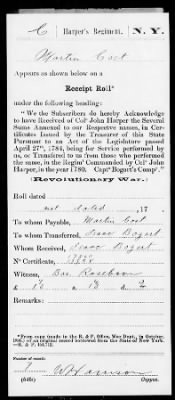 C Harper's Regiment. N. Y.
Martin Cost
Appears as shown below on a
Receipt Roll*
under the following heading:
"We the Subscribers do hereby Acknowledge
to have Received of Colº John Harper the Several
Sums Annexed to our Respective names, in Cer-
tificates Issued by the Treasurer of this State
Pursuant to an Act of the Legislature passed
April 27th, 1784, being for Service performed by
us, or Transferred to us from those who performed
the same, in the Regimt Commanded by Colº John
Harper, in the year 1780. Captⁿ Bogart's Compy."
(Revolutionary War.)
Roll dated
not dated, 17 .
To whom Payable, Martin Cost
To whom Transferred, Isaac Bogart
Whom Received, Isaac Bogart
Nº Certificate,
Witness, Bar. Roseboom
£ 18 2
Remarks:
*From copy (made in the R. & P. Office, War Dept., in October,
of an original record borrowed from the State of New York.
—R. & P.
Number of record:
W Harrison
(648) Copyist.